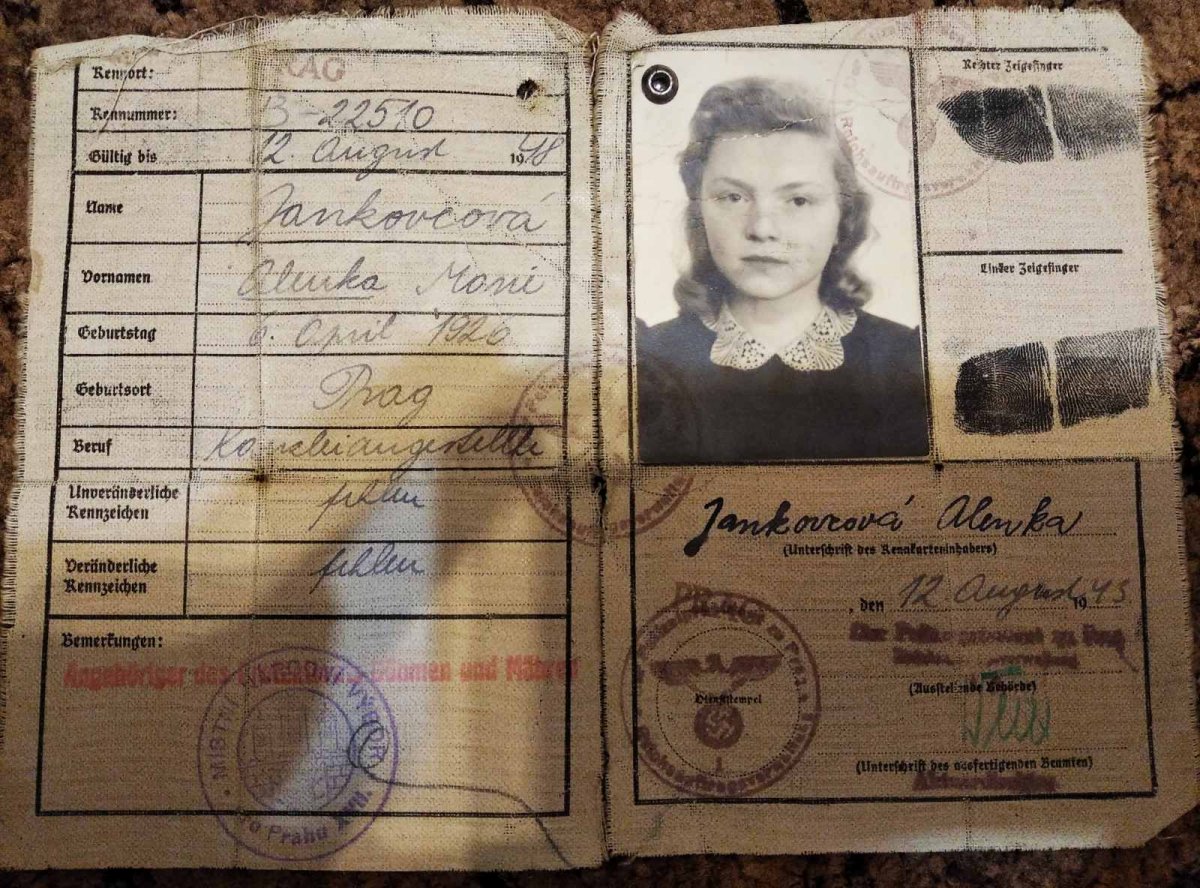 Kennort:
RAG
Kennummer: B-22510
Gültig bis 12 August 1948
Name Jankovcová
Vornamen Alenka
Geburtstag 6. April 1926
Geburtsort Prag
Beruf Kanzleiangestellte
Unveränderliche Kennzeichen fehlen
Veränderliche Kennzeichen fehlen
Bemerkungen:
Angehöriger des Böhmen und Mähren
MÍSTNÍ VÝBOR
Praha
Rechter Zeigefinger
Linker Zeigefinger
Jankovcová Alenka
(Unterschrift des Kennkarteninhabers)
, den 12 August 1943
Dienststempel
(Ausstellende Behörde)
(Unterschrift des ausfertigenden Beamten)